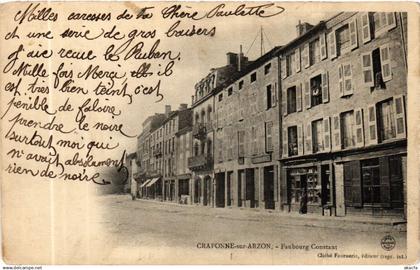 Milles caresses de ta chère Paulette
et une serie de gros baisers
J'ai recue le Ruban.
Mille fois Merci, elle-il
est très bien teint c'est
pénible de faloire
prendre le noire
Surtout moi qui
n'avait absolument
rien de noire.
CRAPONNE-sur-ARZON. - Faubourg Constant
Cliché Faurnerie, éditeur (repr. int.)